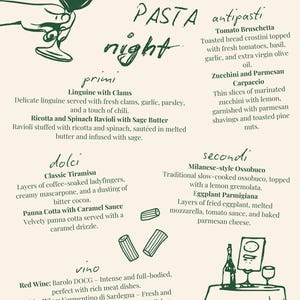 PASTA
night
antipasti
Tomato Bruschetta
Toasted bread crostini topped
with fresh tomatoes, basil,
garlic, and extra virgin olive
oil.
Zucchini and Parmesan
Carpaccio
Thin slices of marinated
zucchini with lemon,
garnished with parmesan
shavings and toasted pine
nuts.
primi
Linguine with Clams
Delicate linguine served with fresh clams, garlic, parsley,
and a touch of chili.
Ricotta and Spinach Ravioli with Sage Butter
Ravioli stuffed with ricotta and spinach, sautéed in melted
butter and infused with sage.
dolci
Classic Tiramisu
Layers of coffee-soaked ladyfingers,
creamy mascarpone, and a dusting of
bitter cocoa.
Panna Cotta with Caramel Sauce
Velvety panna cotta served with a
caramel drizzle.
secondi
Milanese-style Ossobuco
Traditional slow-cooked ossobuco, topped
with a lemon gremolata.
Eggplant Parmigiana
Layers of fried eggplant, melted
mozzarella, tomato sauce, and baked
parmesan cheese.
vino
Red Wine: Barolo DOCG – Intense and full-bodied,
perfect with rich meat dishes.
Vermentino di Sardegna – Fresh and